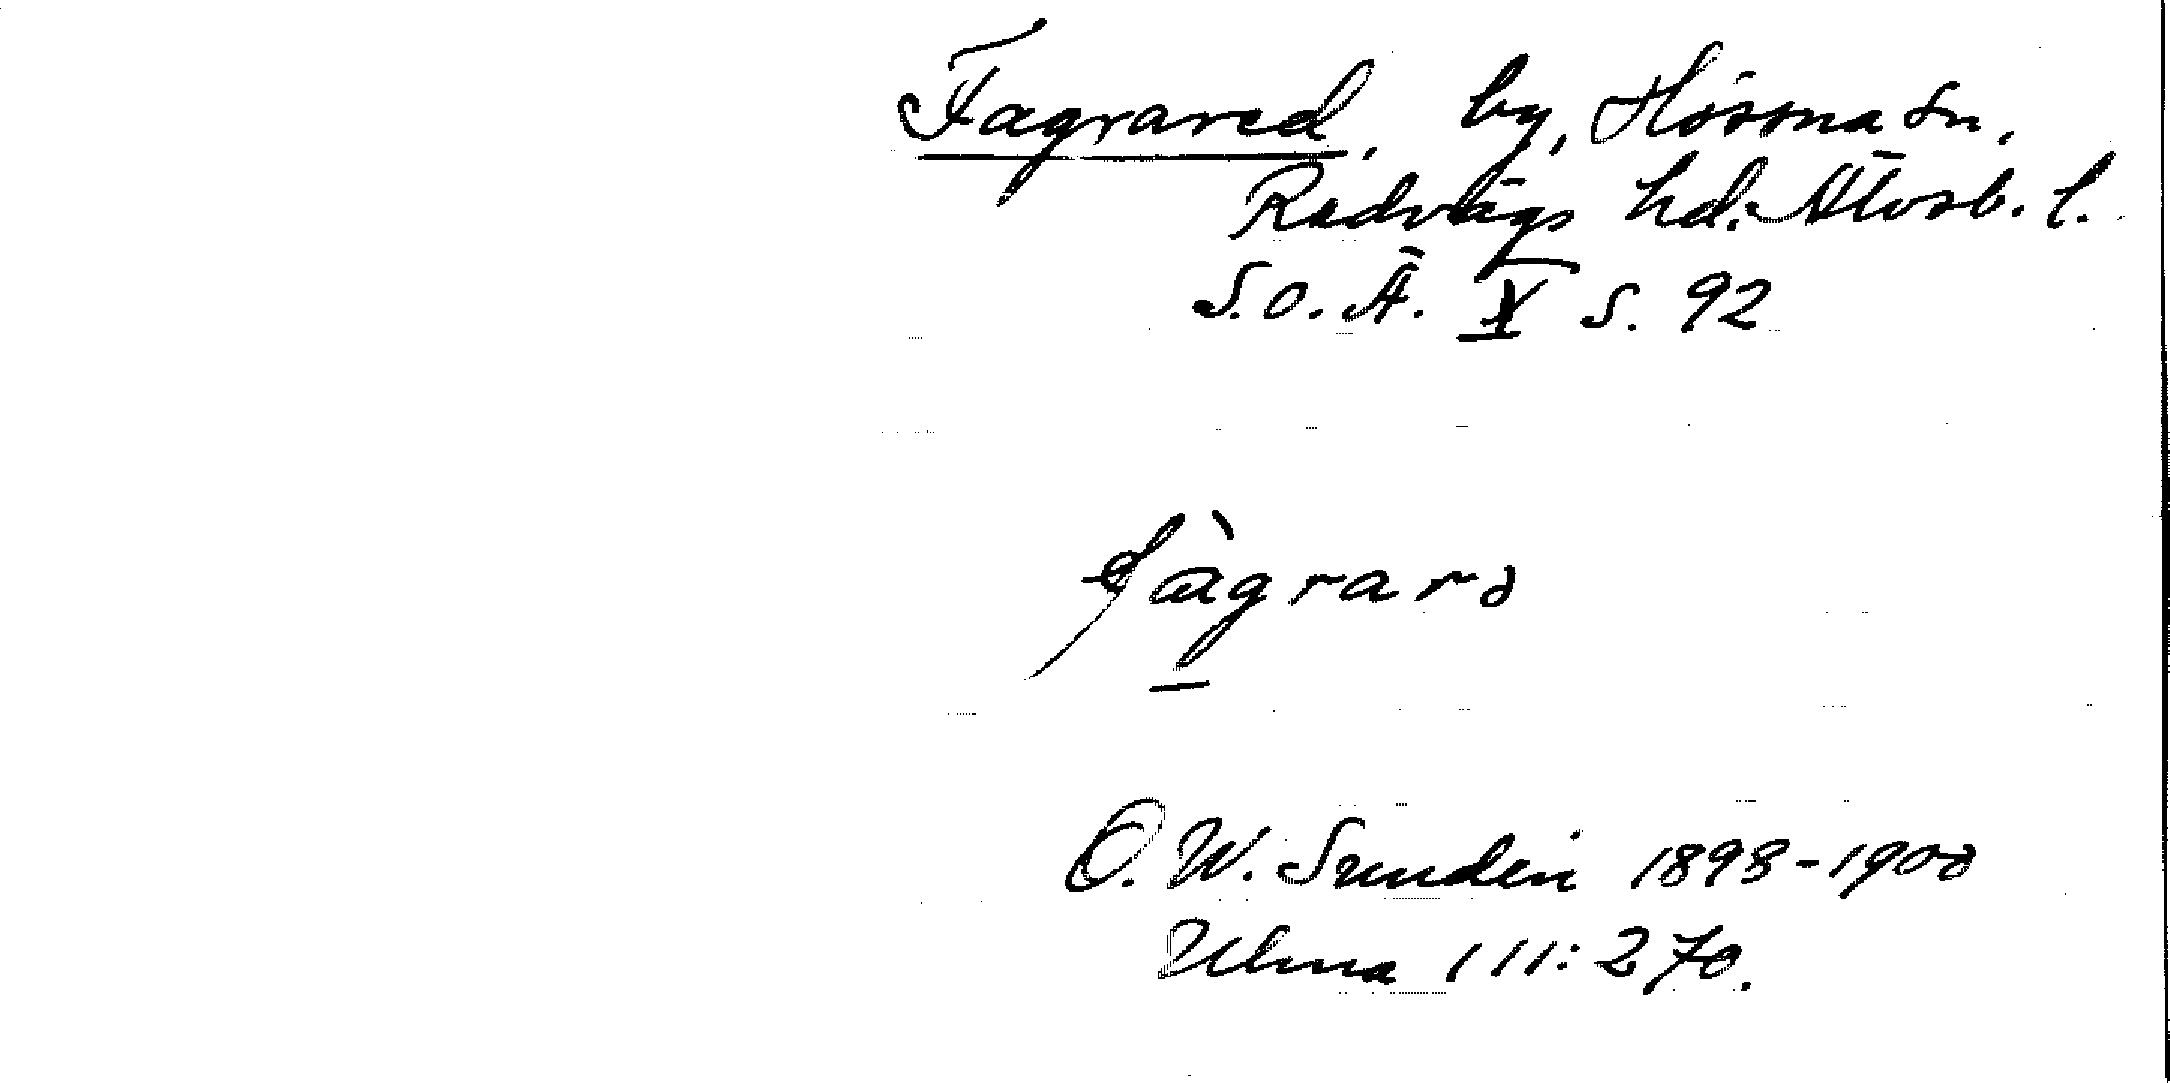 Fagrared, by, Hössna sn,
Redvägs hd. Älvsb. l.
S.O.Ä. X s. 92
fàgrarə
O. W. Sundén 1898-1900
Ulma 111:270.